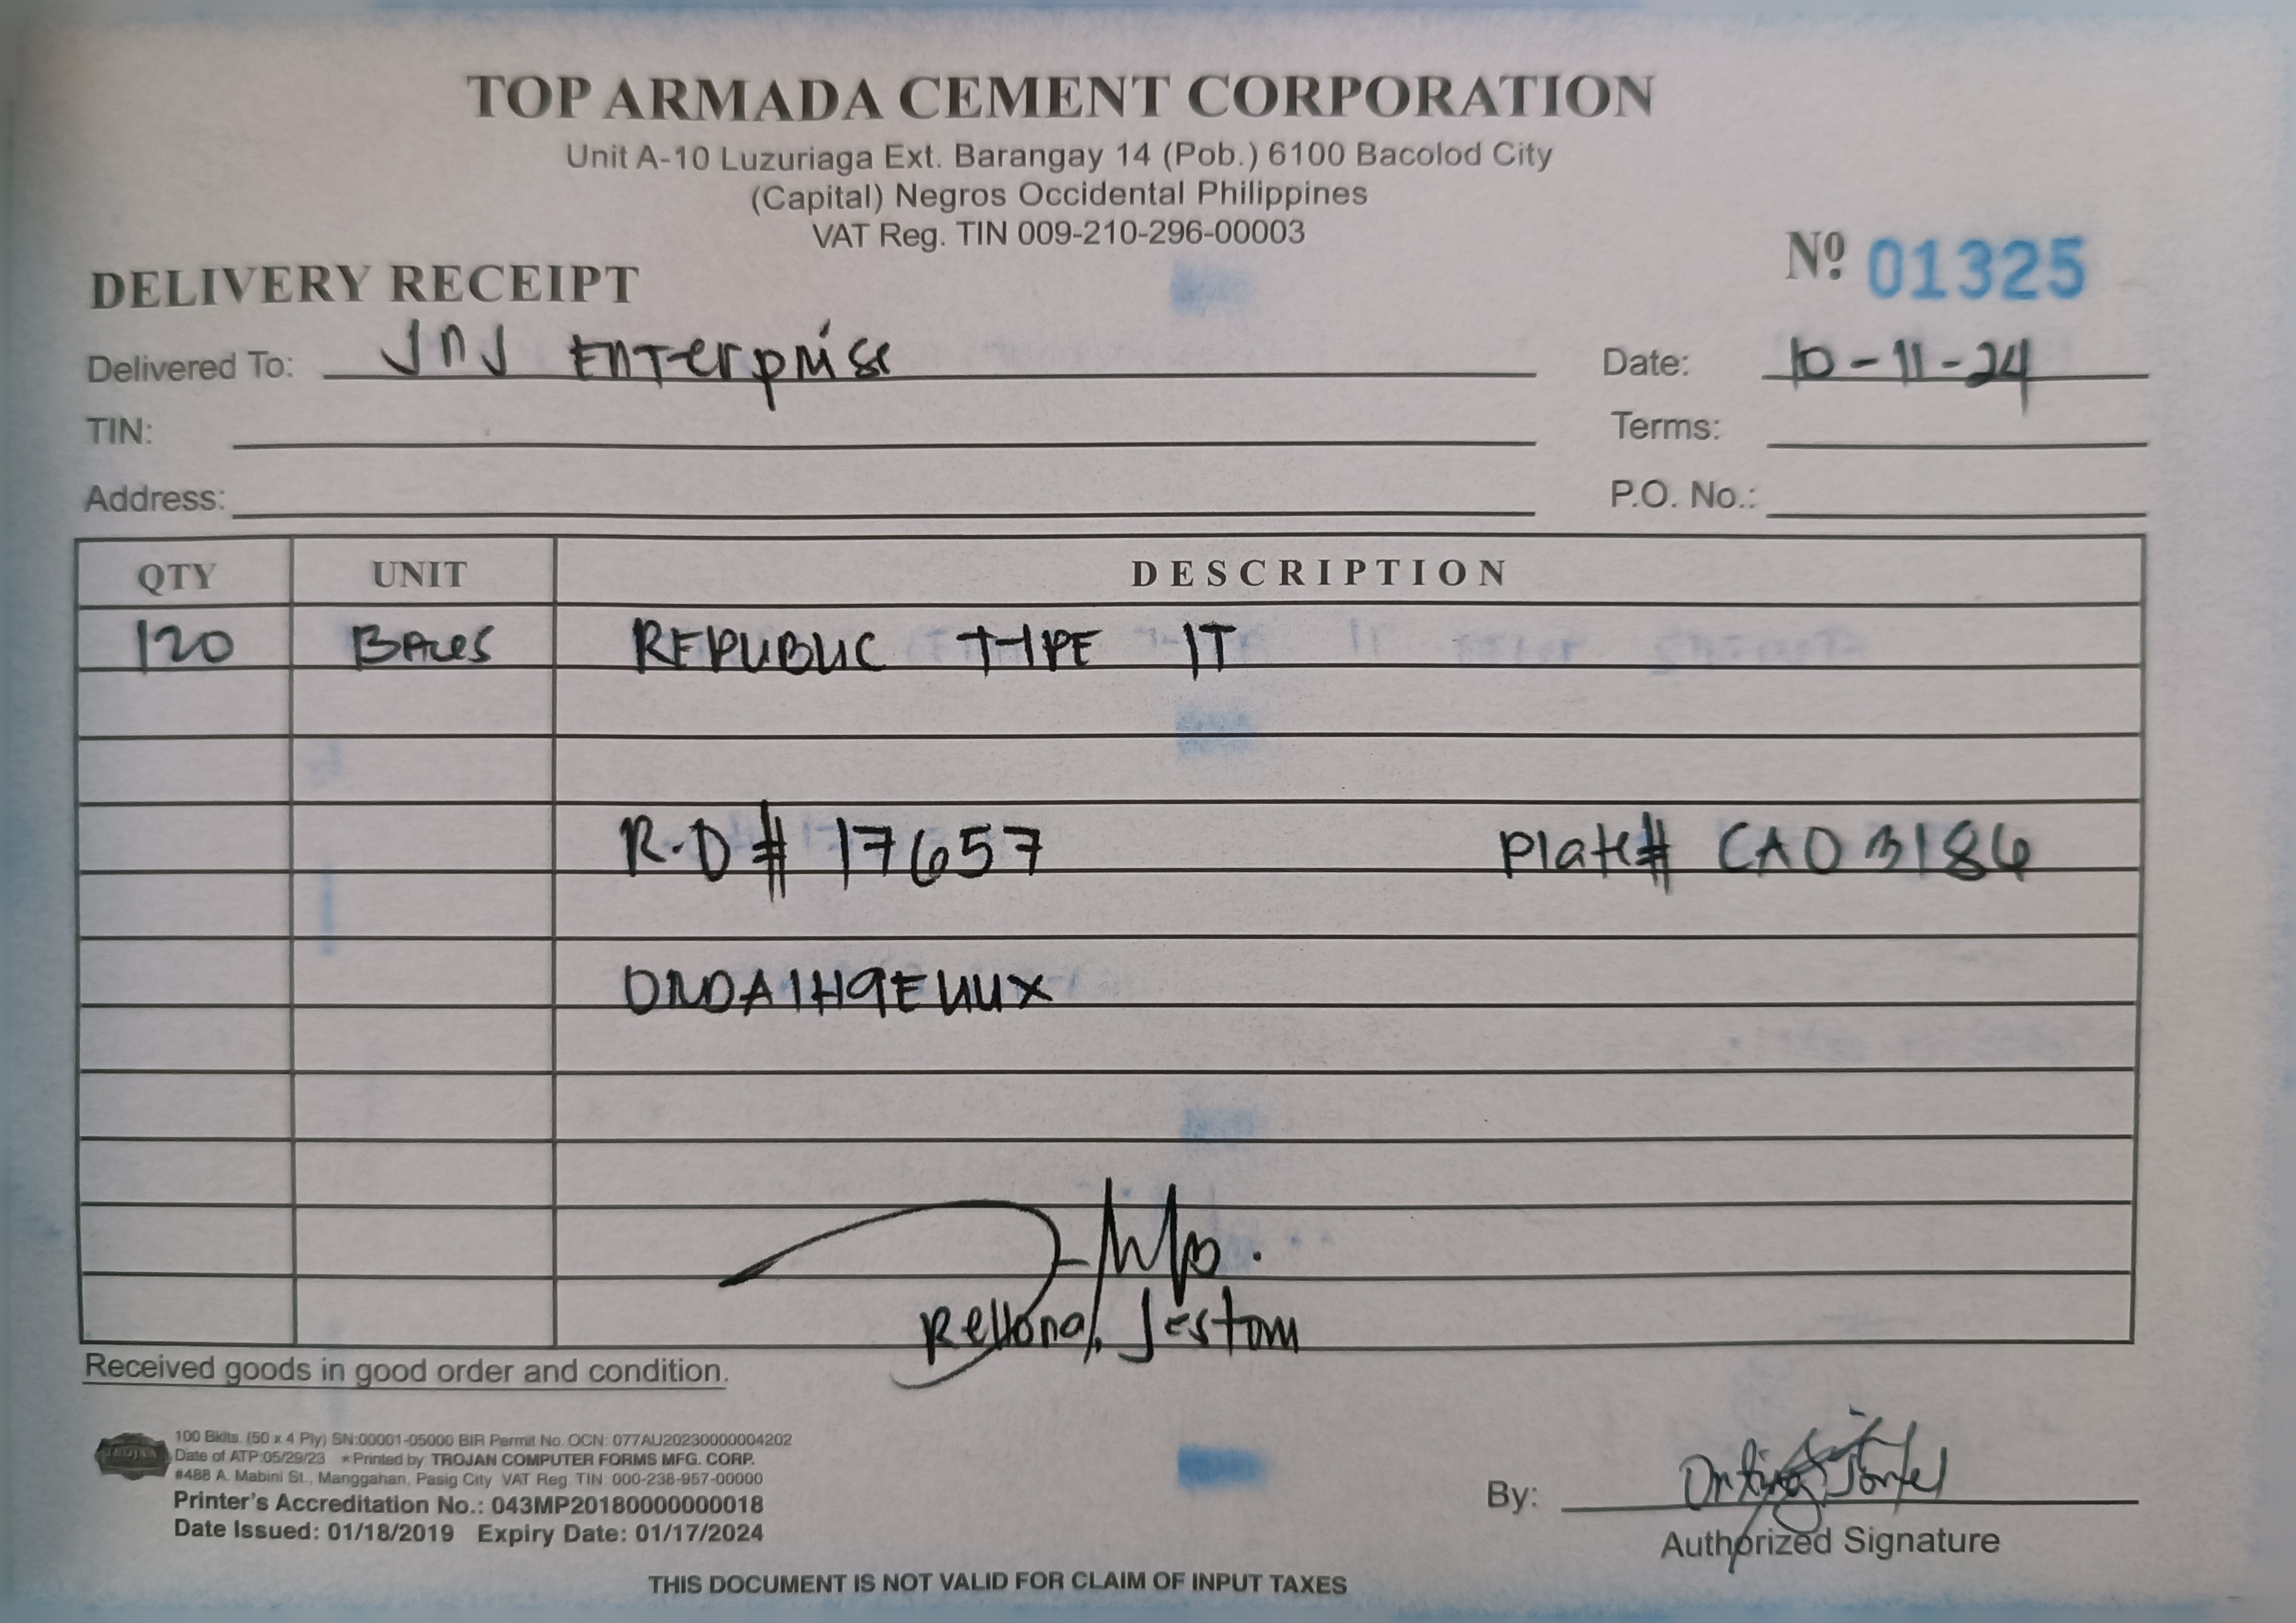 TOP ARMADA CEMENT CORPORATION
Unit A-10 Luzuriaga Ext. Barangay 14 (Pob.) 6100 Bacolod City
(Capital) Negros Occidental Philippines
VAT Reg. TIN 009-210-296-00003
DELIVERY RECEIPT
Nº 01325
Delivered To: JNJ Enterprise Date: 10-11-24
TIN: Terms:
Address: P.O. No.:
QTY UNIT DESCRIPTION
120 BALES REPUBLIC TYPE IT
R.D # 17657 Plate# CAO 3186
Jestom
Received goods in good order and condition.
100 Bklts. (50 x 4 Ply) SN:00001-05000 BIR Permit No. OCN: 077AU20230000004202
Date of ATP:05/29/23 ★Printed by: TROJAN COMPUTER FORMS MFG. CORP.
#488 A. Mabini St., Manggahan, Pasig City VAT Reg. TIN: 000-238-957-00000
Printer's Accreditation No.: 043MP20180000000018
Date Issued: 01/18/2019 Expiry Date: 01/17/2024
By:
Authorized Signature
THIS DOCUMENT IS NOT VALID FOR CLAIM OF INPUT TAXES